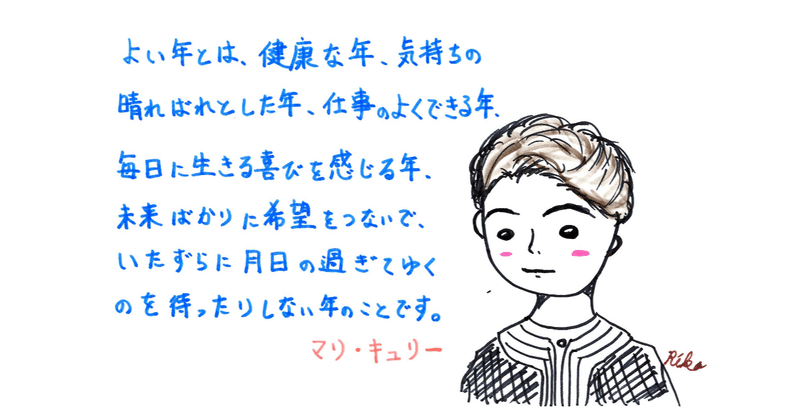 よい年とは、健康な年、気持ちの
晴ればれとした年、仕事のよくできる年、
毎日に生きる喜びを感じる年、
未来ばかりに希望をつないで、
いたずらに月日の過ぎてゆく
のを待ったりしない年のことです。
マリ・キュリー
Rika